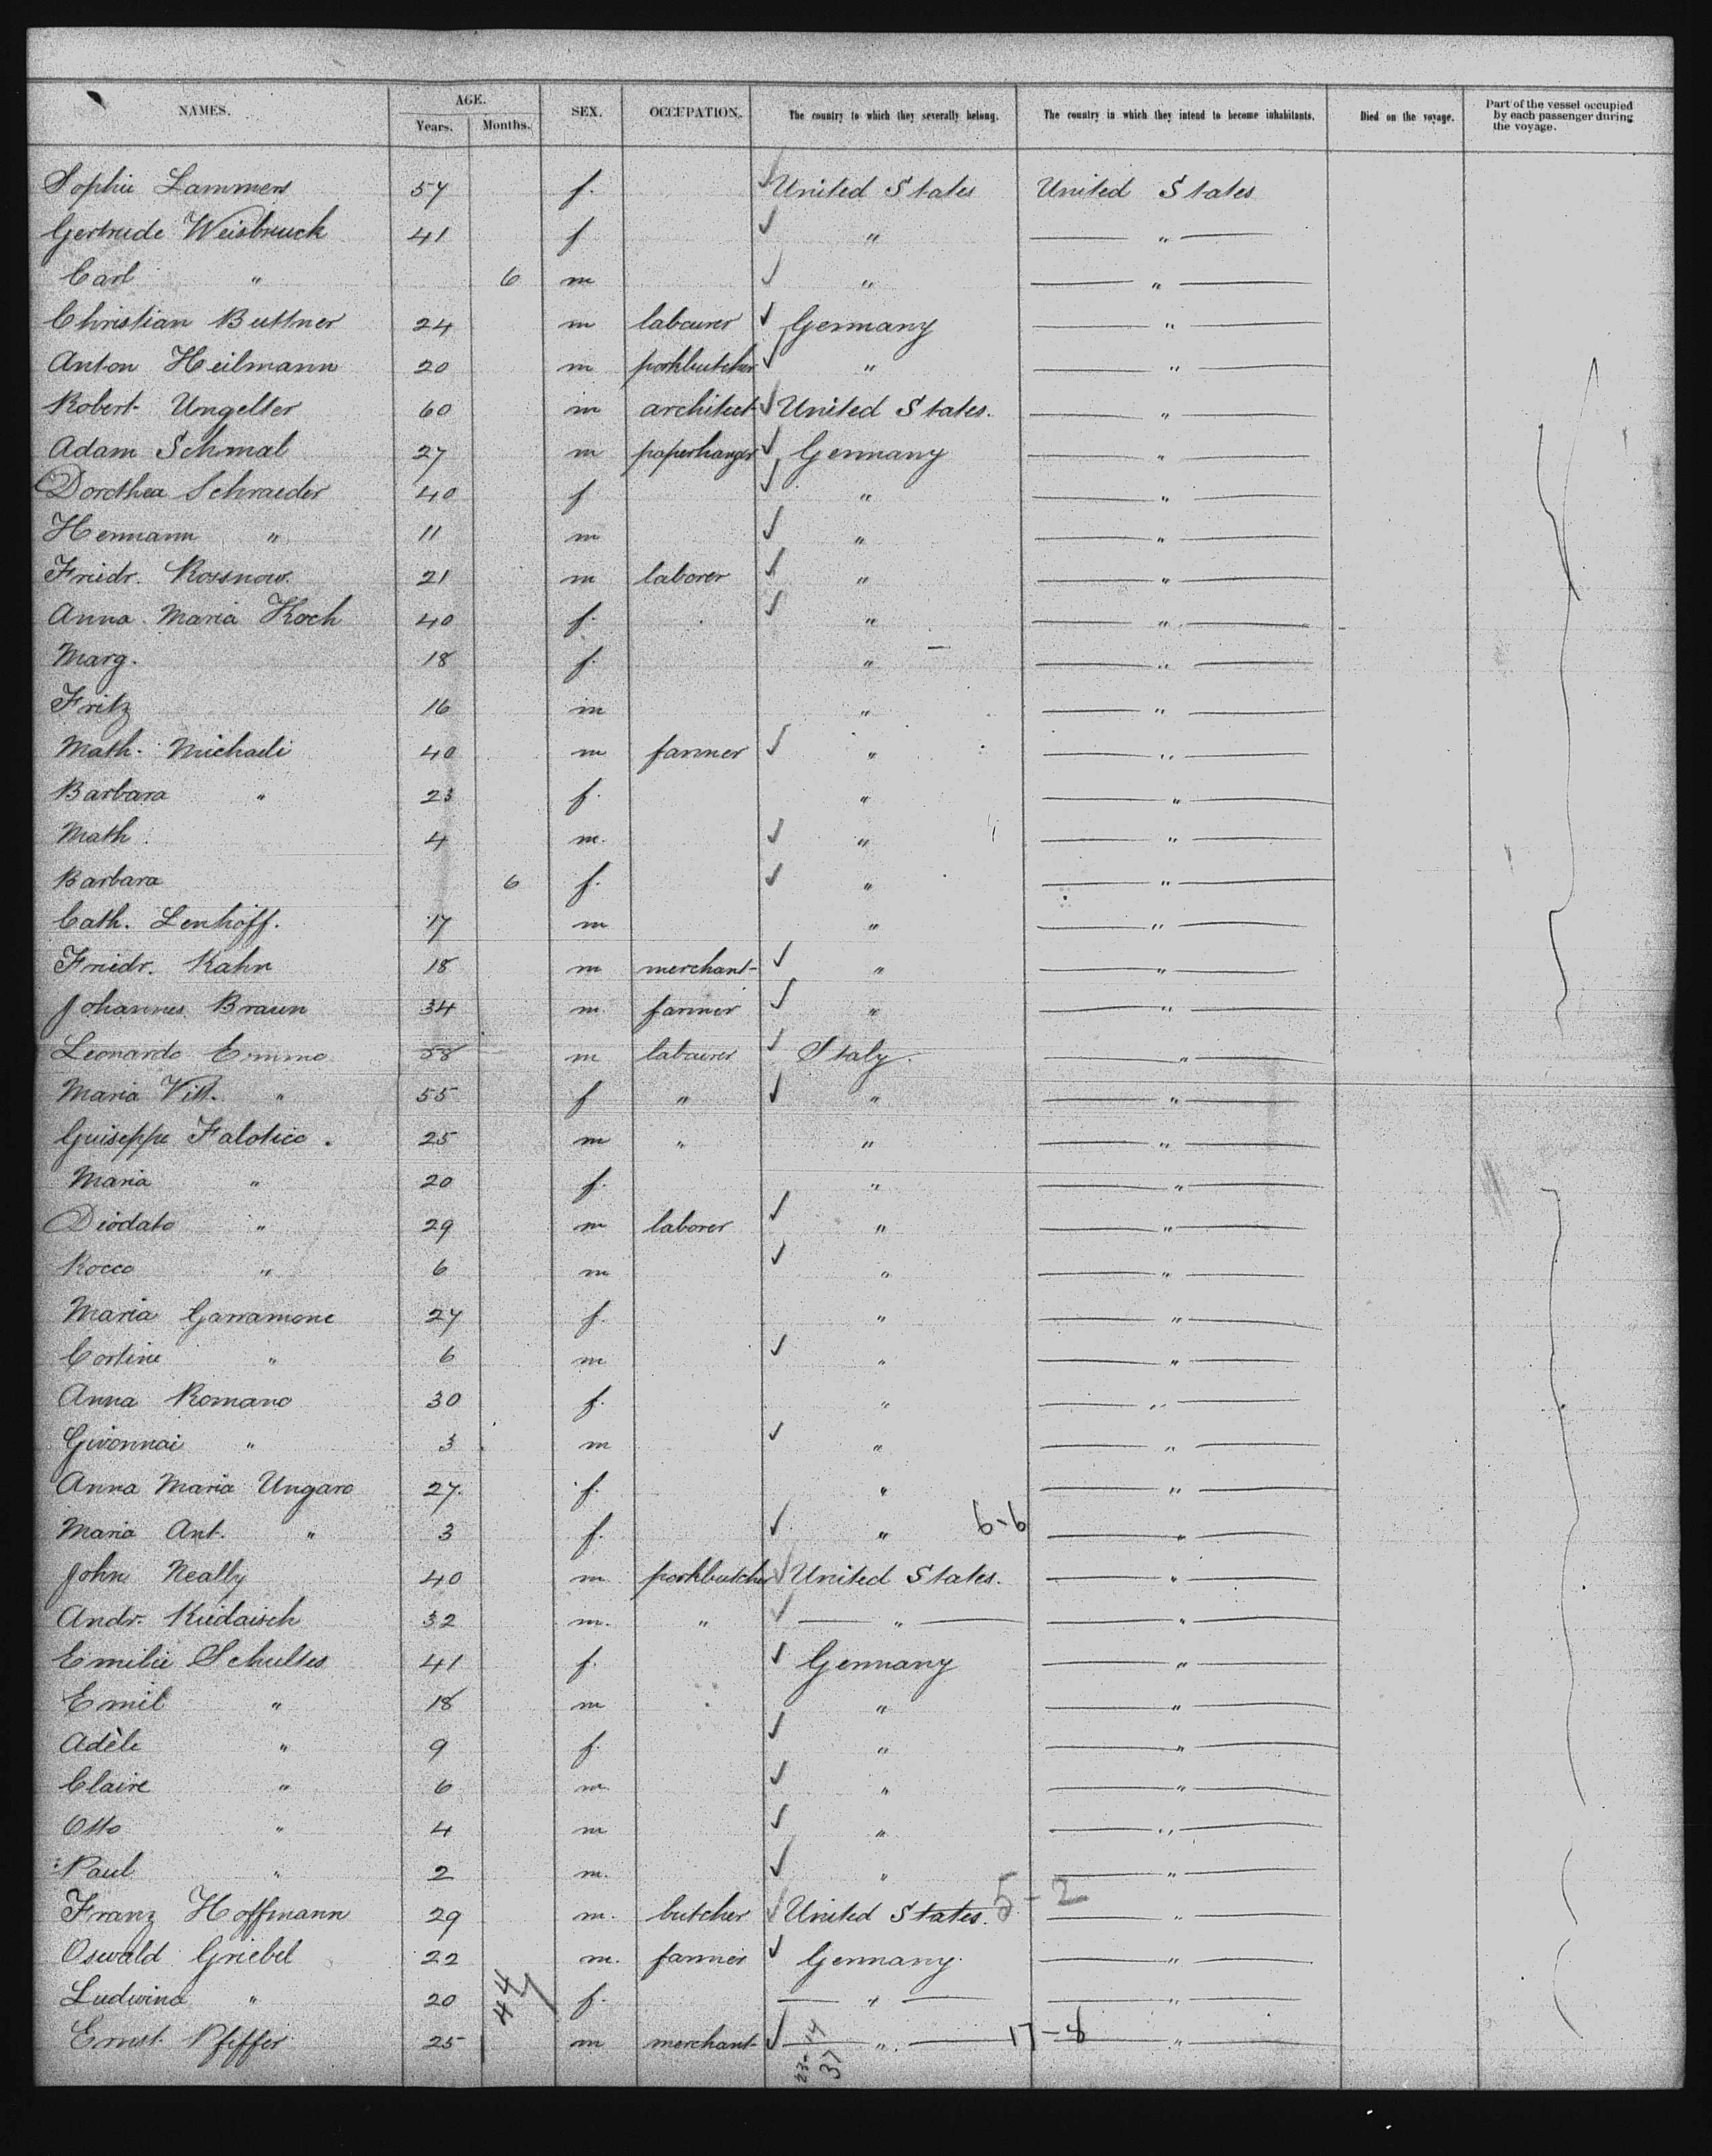 NAMES. AGE. Years. Months. SEX. OCCUPATION. The country to which they severally belong. The country in which they intend to become inhabitants. Died on the voyage. Part of the vessel occupied by each passenger during the voyage.
Sophie Lammers 57 f. United States United States
Gertrude Weisbruch 41 f " "
Carl " 6 m " "
Christian Buttner 24 m labourer Germany "
Anton Heilmann 20 m porkbutcher " "
Robert Ungelter 60 m architect United States. "
Adam Schmal 27 m paperhanger Germany "
Dorothea Schraeder 40 f " "
Hermann " 11 m " "
Friedr. Rossnow. 21 m laborer " "
Anna Maria Koch 40 f. " "
Marg. 18 f. " "
Fritz 16 m " "
Math. Michaeli 40 m farmer " "
Barbara " 23 f. " "
Math. 4 m. " "
Barbara 6 f. " "
Cath. Lenhoff. 17 m " "
Friedr. Kahn 18 m merchant " "
Johannes Braun 34 m. farmer " "
Leonardo Emmo 58 m labourer Italy. "
Maria Vitt. " 55 f " " "
Guiseppe Falotico. 25 m " " "
Maria " 20 f. " "
Diodato " 29 m laborer " "
Rocco " 6 m " "
Maria Garramone 27 f. " "
Cortine " 6 m " "
Anna Romano 30 f. " "
Givonnai " 3 m " "
Anna Maria Ungaro 27. f. " "
Maria Ant. " 3 f. " 6-6 "
John Neally 40 m porkbutcher United States. "
Andr. Kiedaisch 32 m. " " "
Emilie Schultes 41 f. Germany "
Emil " 18 m " "
Adèle " 9 f. " "
Claire " 6 m. " "
Otto " 4 m " "
Paul " 2 m. " "
Franz Hoffmann 29 m. butcher United States. 5-2 "
Oswald Griebel 22 m. farmer Germany. "
Ludwina " 20 44 f. " "
Ernst Pfeffer 25 m merchant " 17-8 "
23-14
37